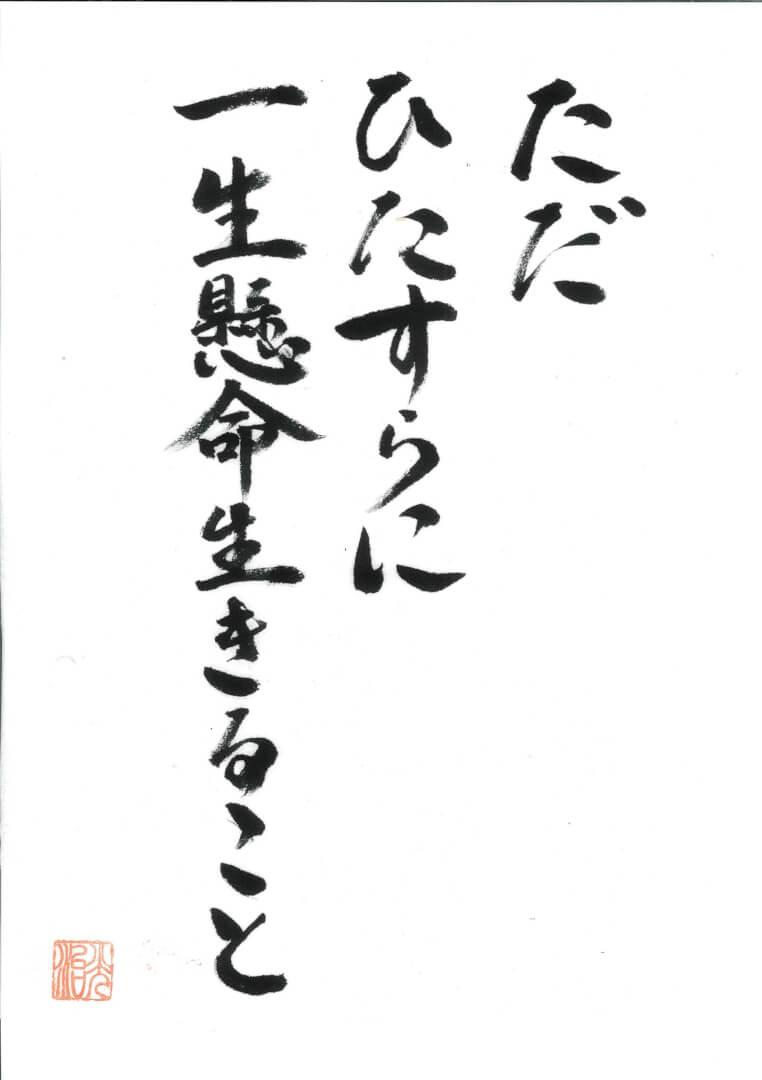 ただ
ひたすらに
一生懸命生きること